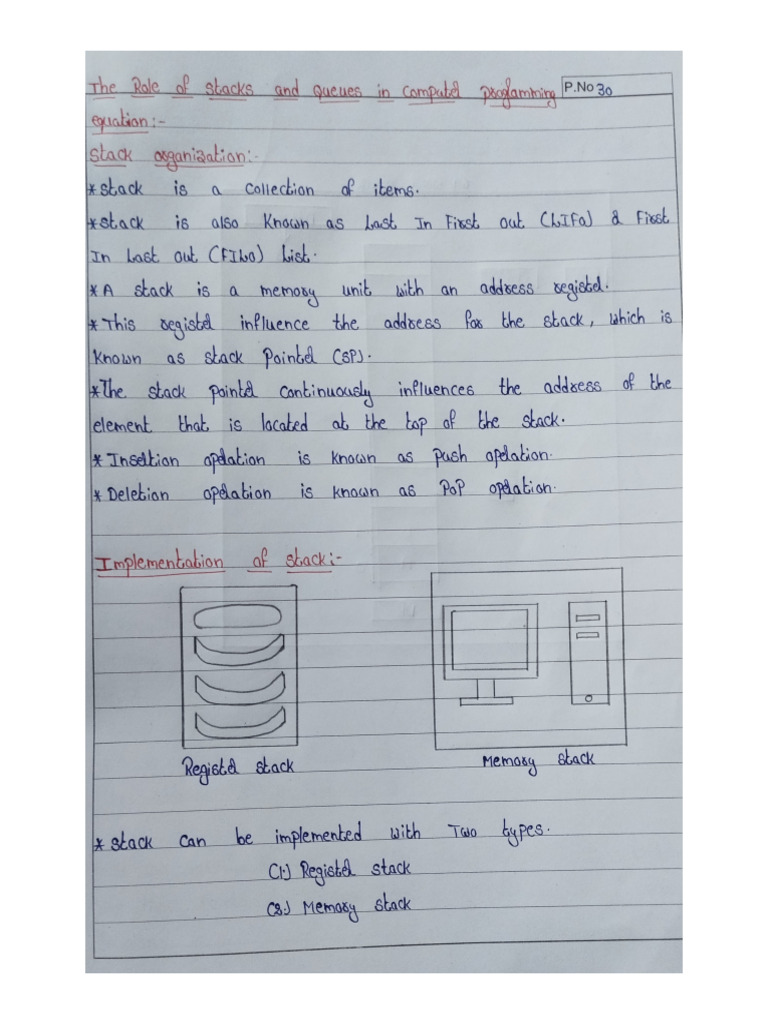 The Role of Stacks and Queues in Computer programming P.No 30
equation:-
Stack organization:-
*Stack is a collection of items.
*Stack is also Known as Last In First out (LIFO) & First
In Last out (FILO) List.
*A stack is a memory unit with an address register.
*This register influence the address for the stack, which is
Known as Stack Pointer (SP).
*The stack pointer continuously influences the address of the
element that is located at the top of the stack.
*Insertion operation is known as Push operation.
*Deletion operation is known as PoP operation.
Implementation of stack:-
Register stack
Memory stack
*Stack can be implemented with Two types.
(1.) Register stack
(2.) Memory stack